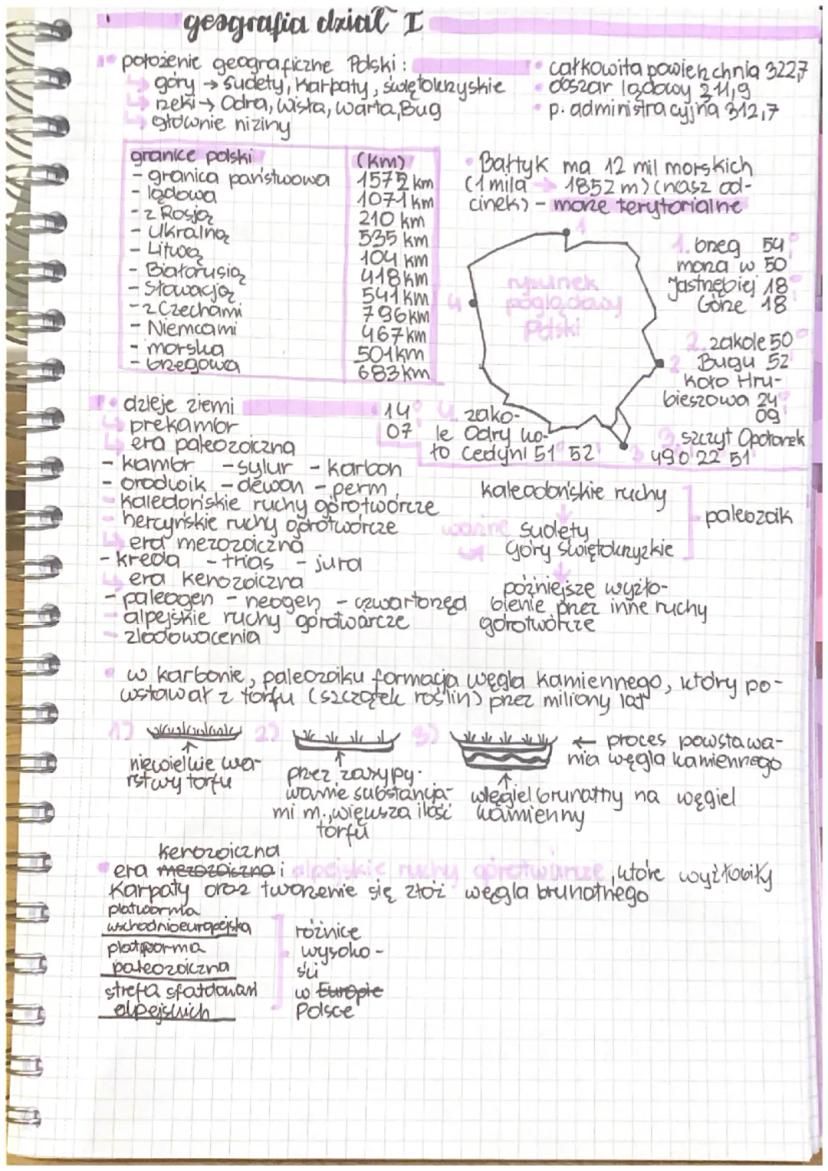 geografia dział I
położenie geograficzne Polski:
góry → Sudety, Karpaty, świętokrzyskie
rzeki → Odra, Wisła, Warta, Bug
głównie niziny
całkowita powierzchnia 322,7
obszar lądowy 311,9
p. administracyjna 312,7
granice polski (km)
- granica państwowa 1572 km
- lądowa 1071 km
- z Rosją 210 km
- Ukrainą 535 km
- Litwą 104 km
- Białorusią 418 km
- Słowacją 541 km
- z Czechami 796 km
- Niemcami 467 km
- morska 501 km
- brzegowa 683 km
Bałtyk ma 12 mil morskich
(1 mila → 1852 m) (nasz od-
cinek) - morze terytorialne
1
rysunek
poglądowy
Polski
4
2
3
1. brzeg 54°
morza w 50
Jastrzębiej 18°
Górze 18
2. zakole 50°
Bugu 52
koło Hru-
bieszowa 24°
09
3. szczyt Opołonek
490 22 51
4. zako-
le Odry ko-
ło Cedyni 51 52
14°
07
dzieje ziemi
prekambr
era paleozoiczna
- kambr - sylur - karbon
- ordowik - dewon - perm
- kaledońskie ruchy górotwórcze
- hercyńskie ruchy górotwórcze
era mezozoiczna
- kreda - trias - jura
era kenozoiczna
- paleogen - neogen - czwartorzęd
- alpejskie ruchy górotwórcze
- zlodowacenia
kaleodońskie ruchy
ważne Sudety
Góry Świętokrzyskie
paleozoik
późniejsze wyżło-
bienie przez inne ruchy
górotwórcze
w karbonie, paleozoiku formacja węgla kamiennego, który po-
wstawał z torfu (szczątek roślin) przez miliony lat
1)
niewielkie wa-
rstwy torfu
2)
przez zasypy-
wanie substancja-
mi m., większa ilość
torfu
3)
← proces powstawa-
nia węgla kamiennego
węgiel brunatny na węgiel
kamienny
kenozoiczna
era mezozoiczna i alpejskie ruchy górotwórcze, które wyżłobiły
Karpaty oraz tworzenie się złóż węgla brunatnego
platforma
wschodnioeuropejska
platforma
paleozoiczna
strefa sfałdowań
alpejskich
różnice
wysoko-
ści
w Europie
Polsce